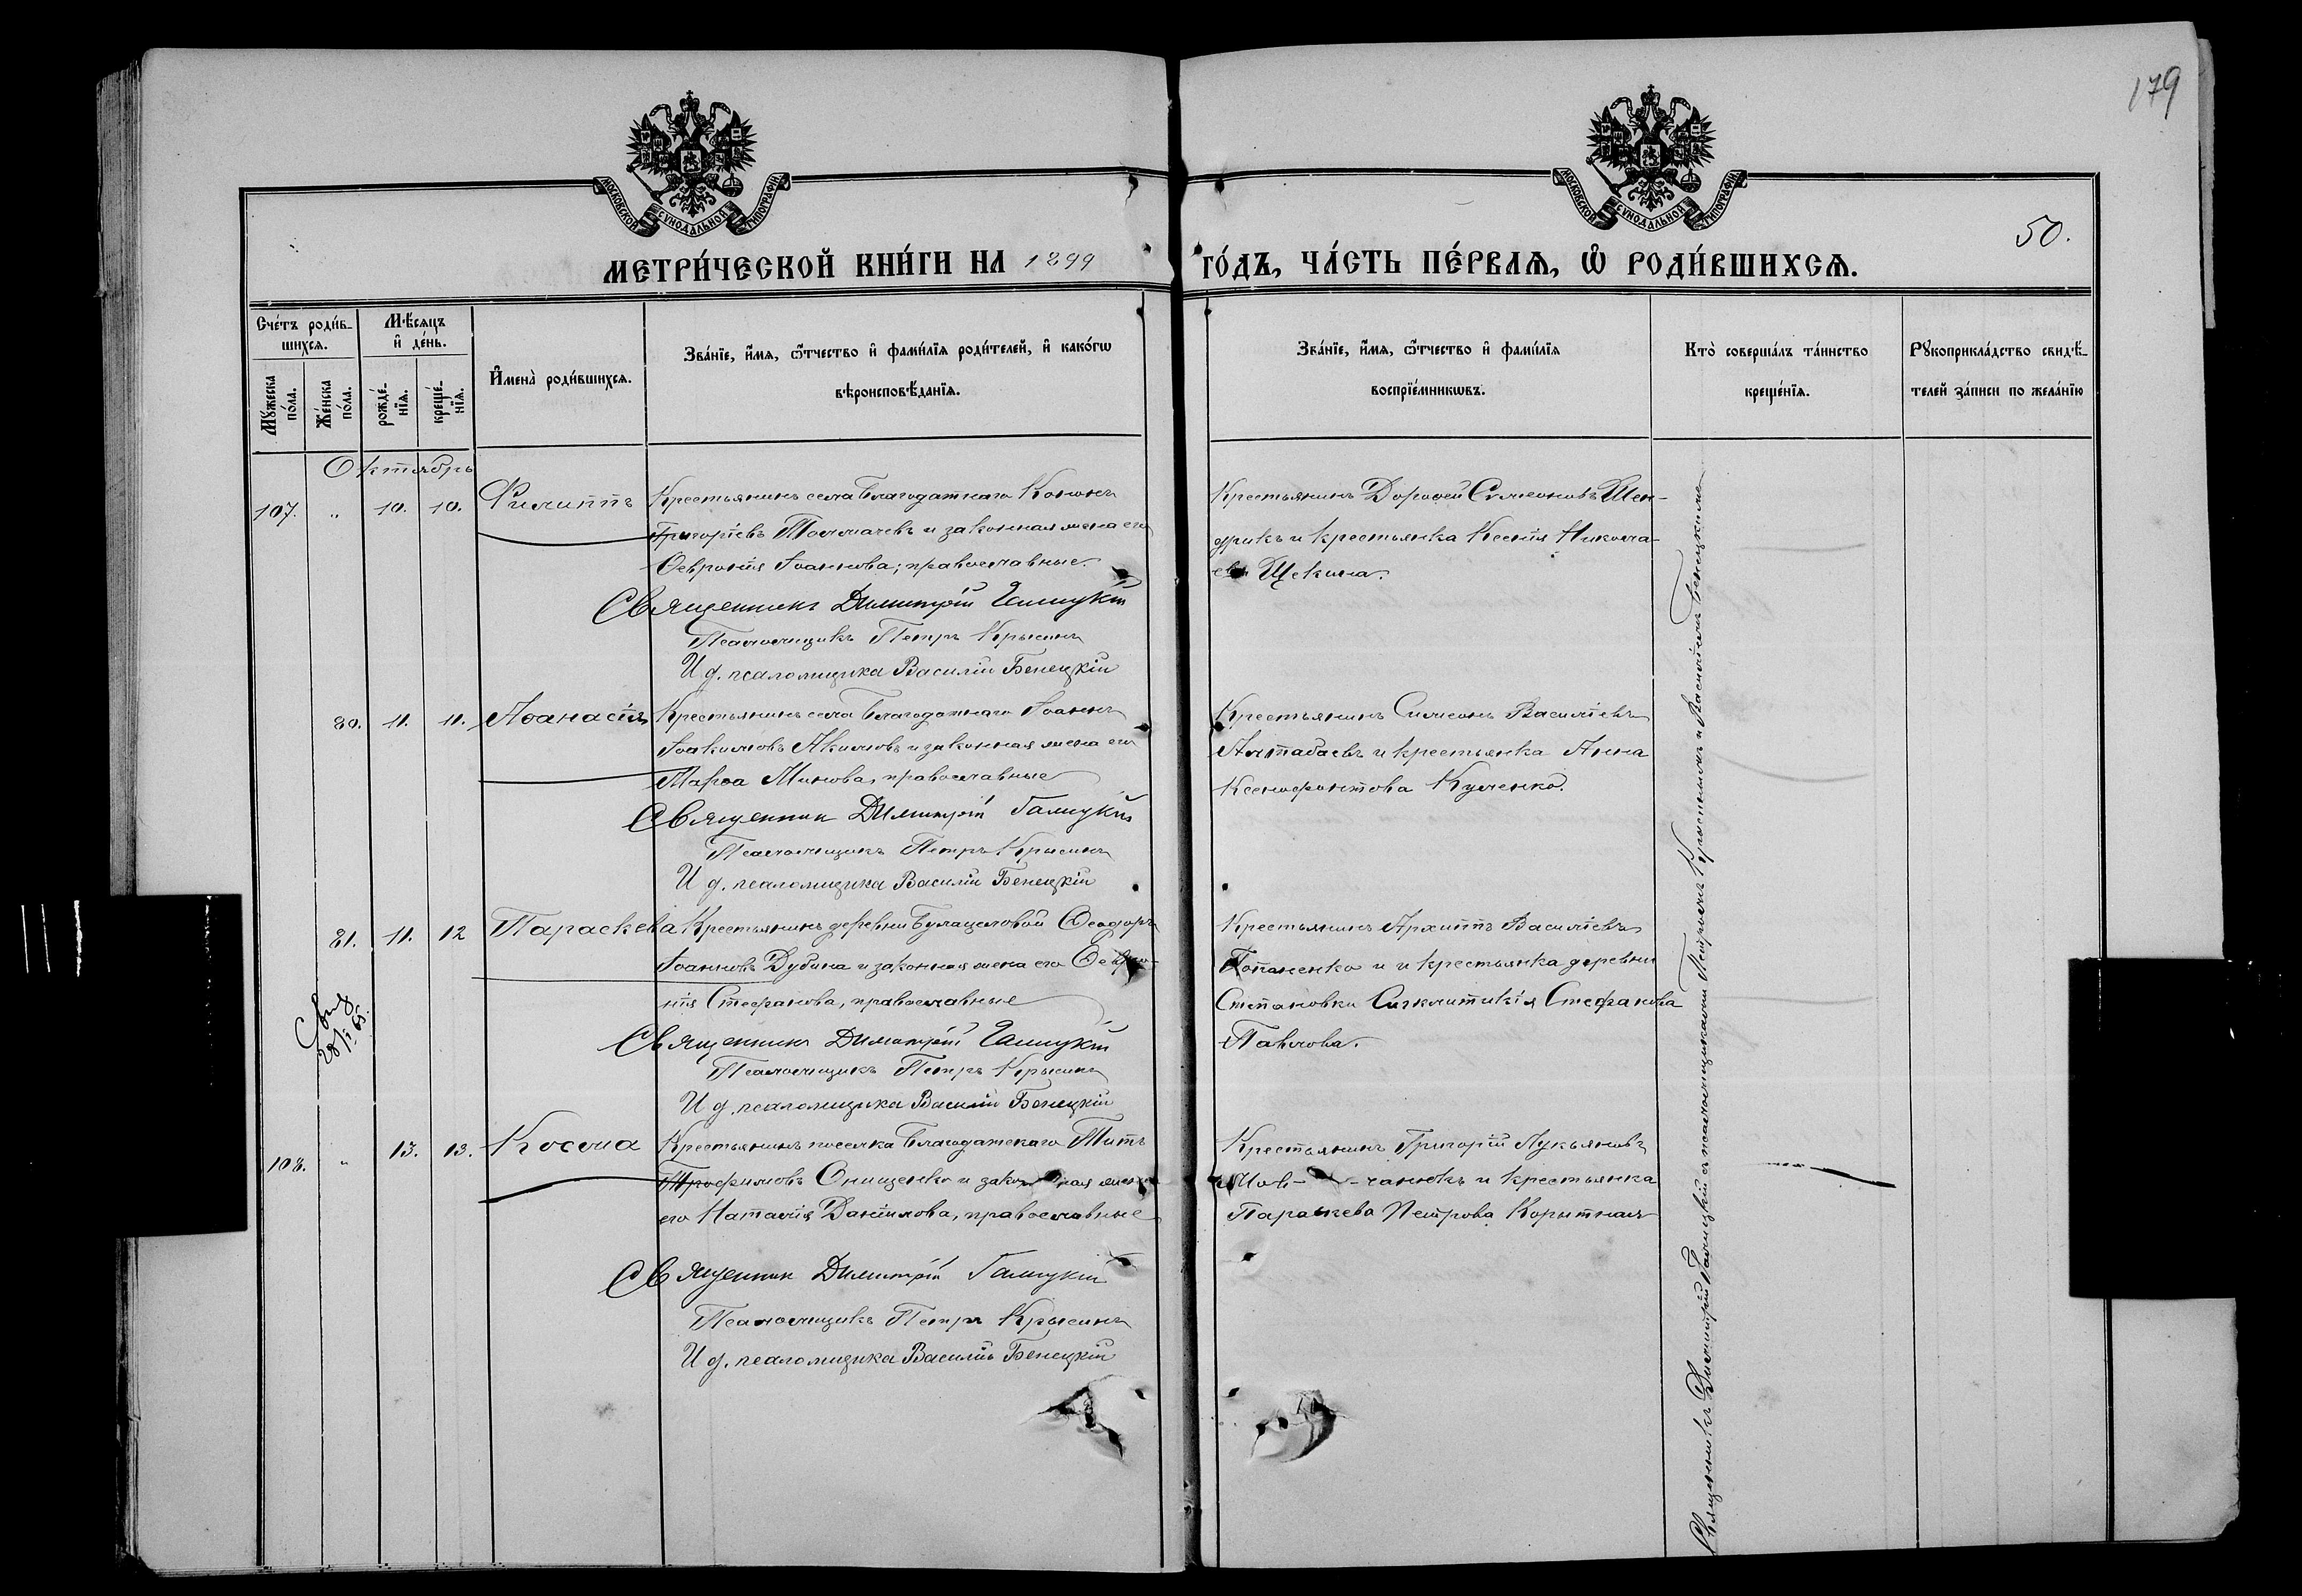 179
МОСКОВСКОЙ СѴНОДАЛЬНОЙ ТИПОГРАФІИ
МОСКОВСКОЙ СѴНОДАЛЬНОЙ ТИПОГРАФІИ
50.
МЕТРИ́ЧЕСКОЙ КНИ́ГИ НА 1899 ГО́ДЪ, ЧА́СТЬ ПЕ́РВАѦ, Ѡ҆ РОДИ́ВШИХСѦ.
Сче́тъ роди́в-
шихсѧ.
Мꙋжеска
по́ла.
Же́нска
по́ла.
Мѣ́сѧцъ
и҆ де́нь.
рожде́-
нїѧ.
креще́-
нїѧ.
И҆мена̀ роди́вшихсѧ.
Зва́нїе, и҆́мѧ, ѻ҆́тчество и҆ фами́лїѧ роди́телей, и҆ како́гѡ
вѣроисповѣ́данїѧ.
Зва́нїе, и҆́мѧ, ѻ҆́тчество и҆ фами́лїѧ
воспрїе́мникѡвъ.
Кто̀ соверша́лъ та́инство
креще́нїѧ.
Рꙋкоприкла́дство свидѣ́-
телей за́писи по жела́нїю
Октябрь
107. " 10. 10. Филиппъ
Крестьянинъ села Благодатнаго Кононъ
Григоріевъ Толмачевъ и законная жена его
Ѳевронія Іоаннова; православные.
Священникъ Димитрій Галицкій
Псаломщикъ Петръ Крысинъ
И д. псаломщика Василій Бенецкій
Крестьянинъ Дороѳей Симеоновъ Шен-
дрикъ и крестьянка Ксенія Никола-
ева Щекина.
80. 11. 11. Аѳанасія
Крестьянинъ села Благодатнаго Іоаннъ
Іоакимовъ Акимовъ и законная жена его
Марѳа Минова, православные
Священник Димитрій Галицкій
Псаломщикъ Петръ Крысинъ
И д. псаломщика Василій Бенецкій
Крестьянинъ Симеонъ Василіевъ
Алтабаевъ и крестьянка Анна
Ксенофонтова Кученко.
81. 11. 12 Параскева
Крестьянинъ деревни Булацеловой Ѳеодоръ
Іоанновъ Дубина и законная жена его Ѳевро-
нія Стефанова, православные
Священникъ Димитрій Галицкій
Псаломщикъ Петръ Крысинъ
И д. псаломщика Василій Бенецкій
Крестьянинъ Архиппъ Василіевъ
Потаненко и и крестьянка деревни
Степановки Сигклитикія Стефанова
Павлова.
28/I 65.
108. " 13. 13. Косма
Крестьянинъ поселка Благодатскаго Титъ
Трофимовъ Онищенко и законная жена
его Наталія Даніилова, православные
Священник Димитрій Галицкій
Псаломщикъ Петръ Крысинъ
И д. псаломщика Василій Бенецкій
Крестьянинъ Григорій Лукьяновъ
и крестьянка
Параскева Петрова Корытная
Священникъ Димитрій Галицкій съ псаломщиками Петромъ Крысинымъ и Василіемъ Бенецкимъ